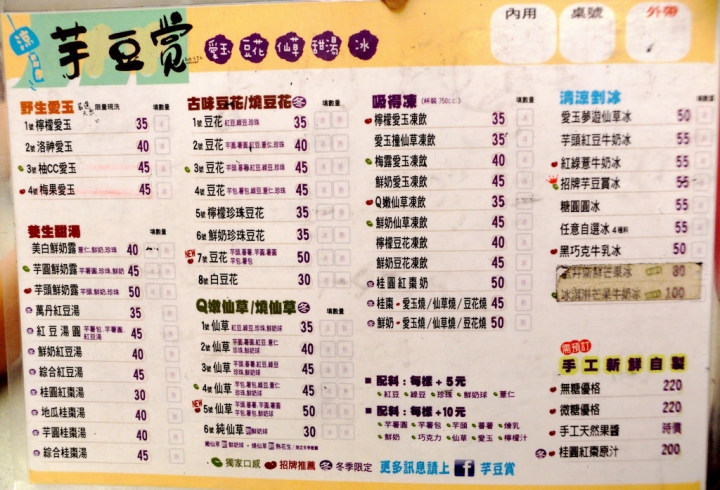 涼
芋豆賞
愛玉 豆花 仙草 甜湯 冰
內用
桌號
外帶
野生愛玉 限量現洗 填數量
1號 檸檬愛玉 35
2號 洛神愛玉 40
3號 柚CC愛玉 45
4號 梅果愛玉 45
養生甜湯 填數量
美白鮮奶露 薏仁,鮮奶,珍珠 40
芋圓鮮奶露 芋薯圓,珍珠,鮮奶 45
芋頭鮮奶露 芋頭,鮮奶,珍珠 50
萬丹紅豆湯 35
紅豆湯圓 芋薯包、芋薯圓 紅豆湯 45
鮮奶紅豆湯 40
綜合紅豆湯 45
桂圓紅棗湯 30
地瓜桂棗湯 40
芋圓桂棗湯 40
綜合桂棗湯 45
古味豆花/燒豆花 冬 填數量
1號 豆花 紅豆,綠豆,珍珠 35
2號 豆花 芋圓,薯圓,紅豆,薏仁,珍珠 40
3號 豆花 芋頭,蕃薯,紅豆,珍珠 45
4號 豆花 芋包,薯包,綠豆,薏仁,珍珠 45
5號 檸檬珍珠豆花 35
6號 鮮奶珍珠豆花 45
NEW 7號 豆花 芋頭,蕃薯,芋圓,薯圓 芋包,薯包 50
8號 白豆花 30
Q嫩仙草/燒仙草 冬 填數量
1號 仙草 紅豆,綠豆,珍珠,鮮奶球 35
2號 仙草 芋圓,薯圓,紅豆,薏仁 珍珠,鮮奶球 40
3號 仙草 芋頭,蕃薯,紅豆,綠豆 珍珠,鮮奶球 45
4號 仙草 芋包,薯包,綠豆,薏仁 珍珠,鮮奶球 45
NEW 5號 仙草 芋頭,蕃薯,芋圓,薯圓 芋包,薯包,鮮奶球 50
6號 純仙草 附鮮奶球 30
嫩仙草附鮮奶球,燒仙草附熱花生
獨家口感 招牌推薦 冬 冬季限定 更多訊息請上 f 芋豆賞
吸得凍 (杯裝 750cc) 填數量
檸檬愛玉凍飲 35
愛玉撞仙草凍飲 35
梅露愛玉凍飲 45
鮮奶愛玉凍飲 45
Q嫩仙草凍飲 35
鮮奶仙草凍飲 45
檸檬豆花凍飲 40
鮮奶豆花凍飲 45
桂圓紅棗奶 50
桂棗-愛玉燒/仙草燒/豆花燒 45
鮮奶-愛玉燒/仙草燒/豆花燒 50
配料:每樣+5元
紅豆 綠豆 珍珠 鮮奶球 薏仁
配料:每樣+10元
芋薯圓 芋薯包 芋頭 蕃薯 煉乳
鮮奶 巧克力 仙草 愛玉 檸檬汁
清涼剉冰 填數量
愛玉夢遊仙草冰 50
芋頭紅豆牛奶冰 55
紅綠薏牛奶冰 55
招牌芋豆賞冰 55
糖圓圓冰 55
任意自選冰 4種料 55
黑巧克牛乳冰 50
新鮮芒果冰 80
冰淇淋芒果牛奶冰 100
需預訂
手工新鮮自製
無糖優格 220
微糖優格 220
手工天然果醬 時價
冬 桂圓紅棗原汁 200